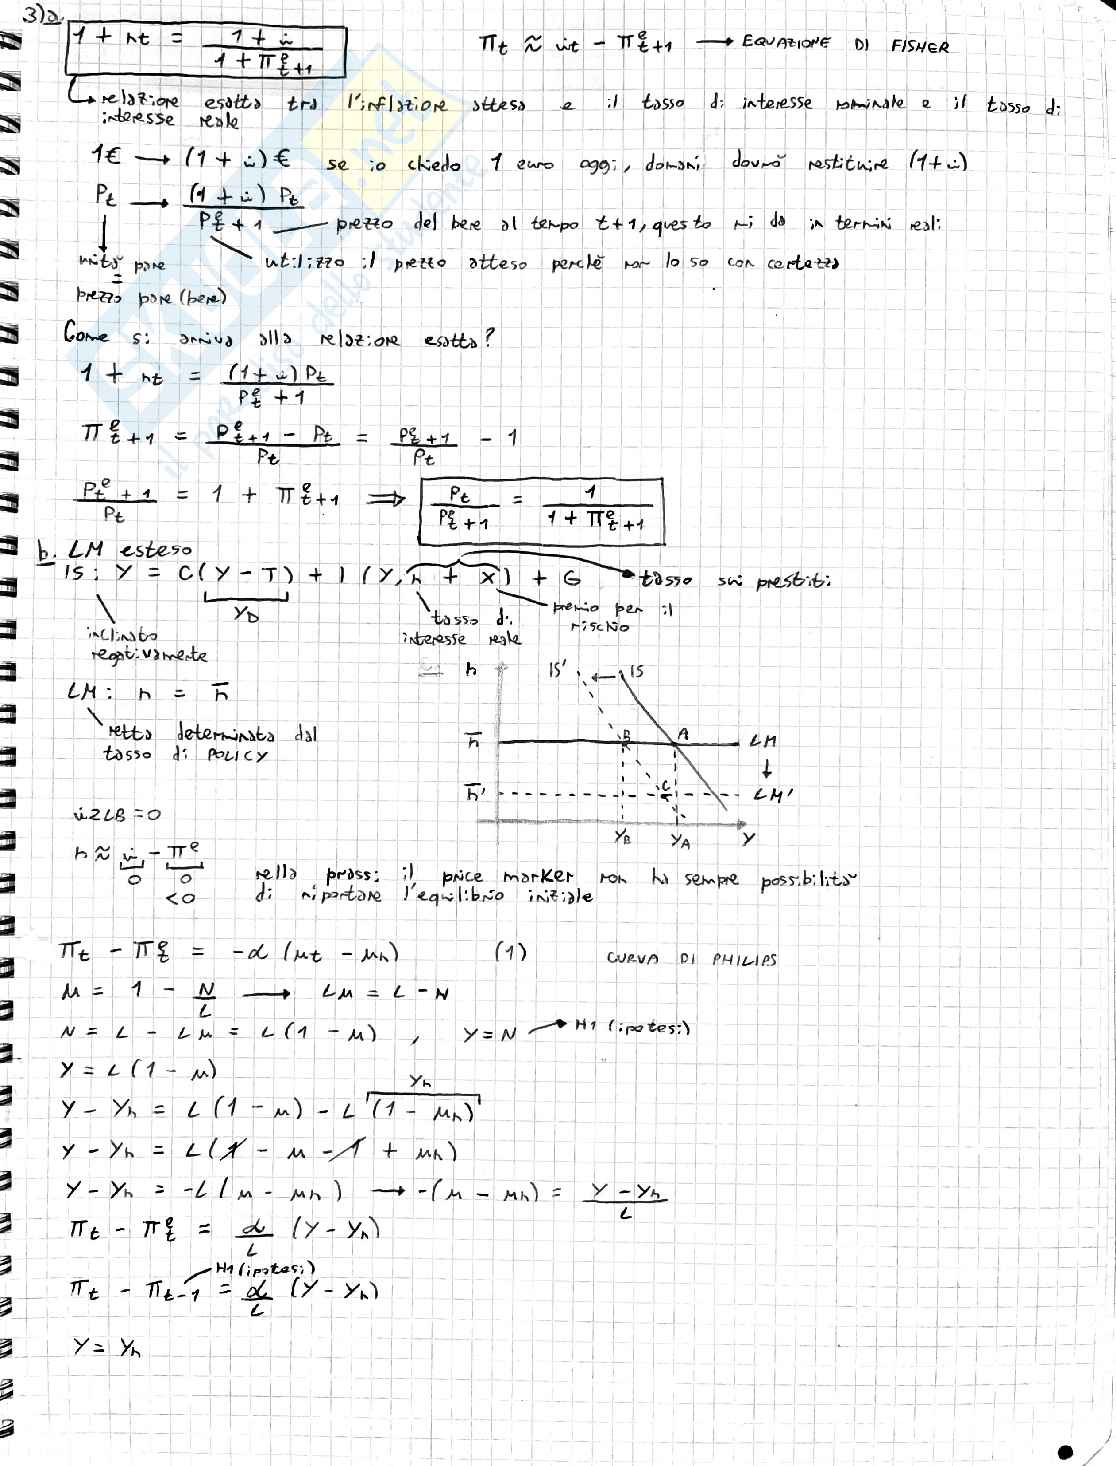 3)a.
1 + rt = (1 + it) / (1 + π^e t+1)
πt ≈ it - π^e t+1 → EQUAZIONE DI FISHER
relazione esatta tra l'inflazione attesa e il tasso di interesse nominale e il tasso di
interesse reale
1€ → (1 + it) € se io chiedo 1 euro oggi, domani dovrò restituire (1+it)
Pt → (1 + it) Pt / P^e t+1 — prezzo del bene al tempo t+1, questo mi da in termini reali
utilizzo il prezzo atteso perchè non lo so con certezza
unità pane
=
prezzo pane (bene)
Come si arriva alla relazione esatta?
1 + rt = (1 + it) Pt / P^e t+1
π^e t+1 = (P^e t+1 - Pt) / Pt = P^e t+1 / Pt - 1
P^e t+1 / Pt = 1 + π^e t+1 ⇒ Pt / P^e t+1 = 1 / (1 + π^e t+1)
b. LM esteso
IS: Y = C(Y - T) + I (Y, r + x) + G → tasso sui prestiti
YD
tasso di
interesse reale
premio per il
rischio
inclinata
negativamente
r IS' ← IS
LM: r = r̄
retta determinata dal
tasso di POLICY
r̄ B A LM
↓
r̄' C LM'
YB YA Y
iZLB=0
r ≈ i - π^e
0 0
<0
nella prassi il price marker non ha sempre possibilità
di riportare l'equilibrio iniziale
πt - π^e t = -α (ut - un) (1) CURVA DI PHILIPS
u = 1 - N/L → Lu = L - N
N = L - Lu = L(1 - u) , Y = N → H1 (ipotesi)
Y = L(1 - u)
Yn
Y - Yn = L(1 - u) - L(1 - un)
Y - Yn = L(1 - u - 1 + un)
Y - Yn = -L(u - un) → -(u - un) = (Y - Yn) / L
πt - π^e t = α/L (Y - Yn)
H1 (ipotesi)
πt - πt-1 = α/L (Y - Yn)
Y = Yn